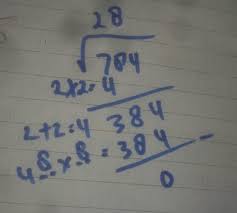 28
√784
2x2=4
384
2+2=4
48 x 8 = 384 -
0